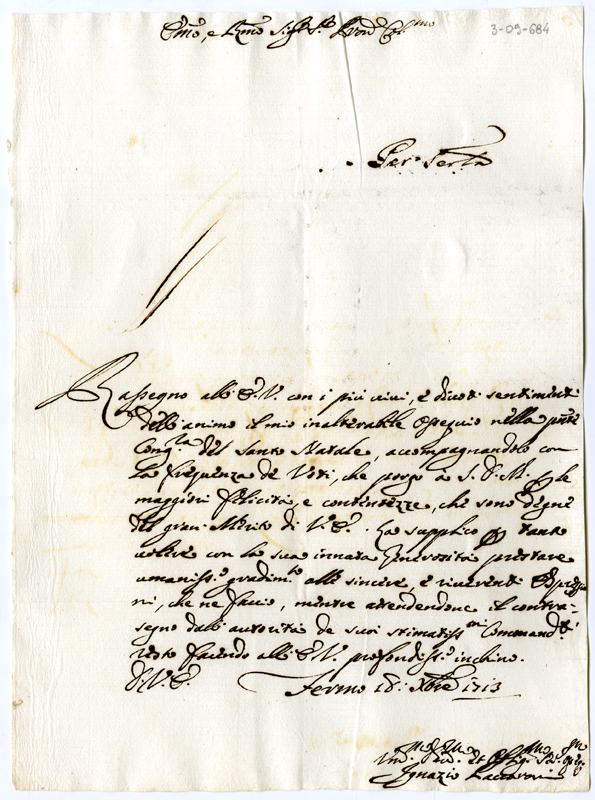 Emo, e Rmo Sigr Sr Pron Colmo
3-09-684
Per Serta
Rassegno all'E.V. con i più vivi, e divoti sentimenti
dell'animo il mio inalterabile Ossequio nella pnte
Congra del Santo Natale, accompagnandolo con
la frequenza de Voti, che porgo à S.D.M. p le
maggiori felicità, e contentezze, che sono degne
del gran Merito di V.E. La supplico p tanto
volere con la sua innata Generosità prestare
umaniss.o gradim.to alle sincere, e riverenti Espressio
ni, che ne faccio, mentre attendendone il contra-
segno dall'autorità de suoi stimatiss.mi Command.ti
resto facendo all'E.V. profondiss.o inchino.
D.V.E. Fermo 18. Xbre 1713
Ignazio